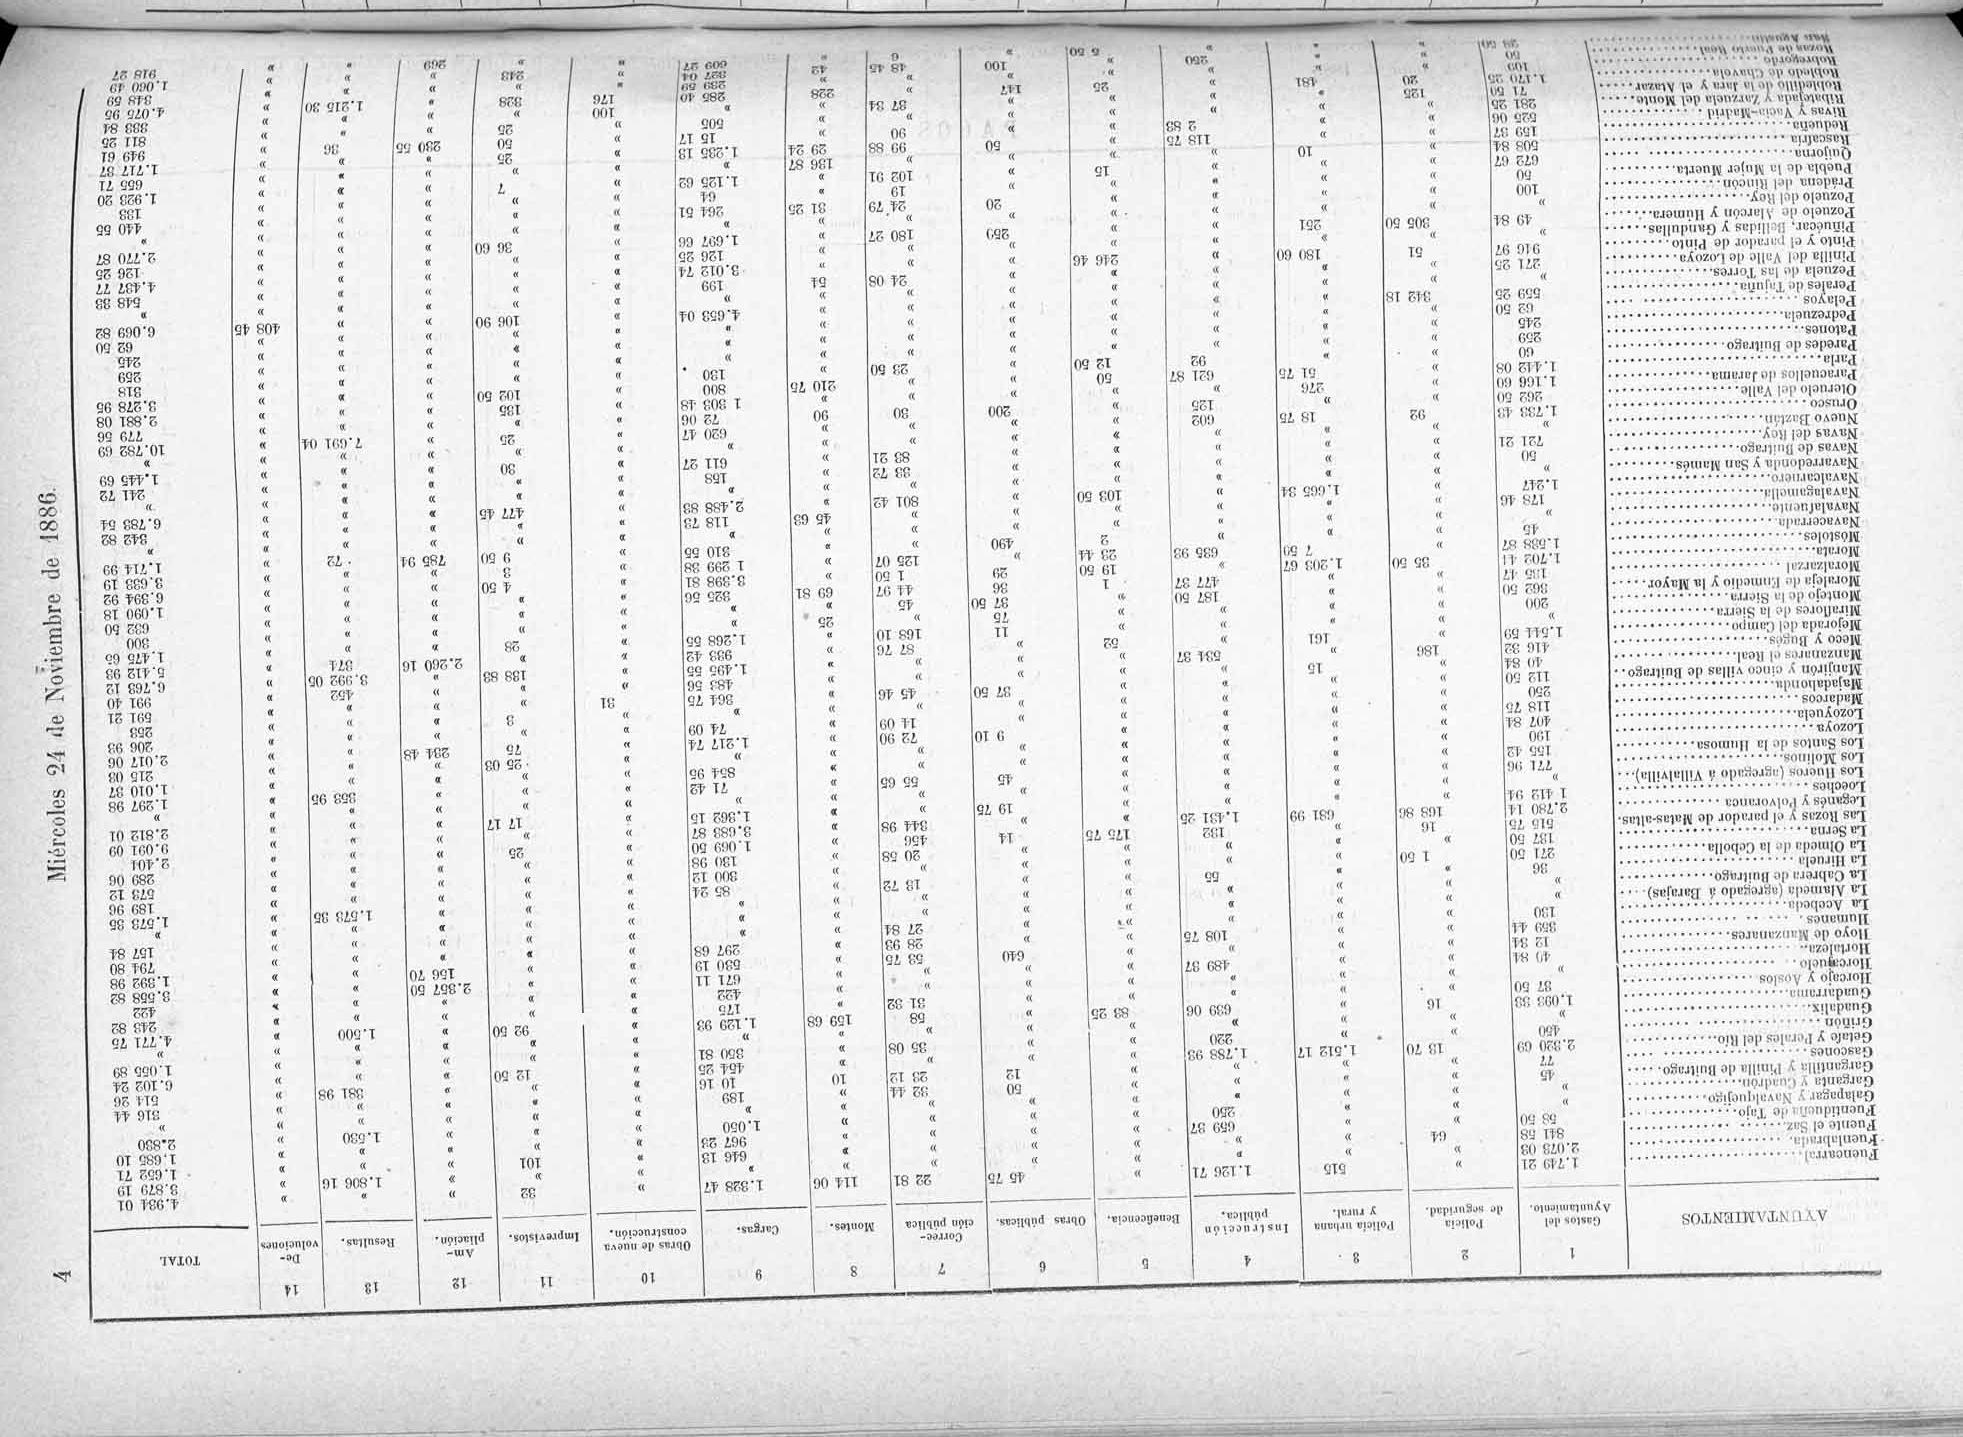 4
Miércoles 24 de Noviembre de 1886.
AYUNTAMIENTOS
1 Gastos del Ayuntamiento.
2 Policía de seguridad.
3 Policía urbana y rural.
4 Instrucción pública.
5 Beneficencia.
6 Obras públicas.
7 Corrección pública
8 Montes.
9 Cargas.
10 Obras de nueva construcción.
11 Imprevistos.
12 Ampliación.
13 Resultas.
14 Devoluciones
TOTAL
Fuencarral
Fuenlabrada
Fuente el Saz
Fuentidueña de Tajo
Galapagar y Navalquejigo
Garganta y Cuadrón
Gargantilla y Pinilla de Buitrago
Gascones
Getafe y Perales del Río
Griñón
Guadalix
Guadarrama
Horcajo y Aoslos
Horcajuelo
Hortaleza
Hoyo de Manzanares
Humanes
La Acebeda
La Alameda (agregado á Barajas)
La Cabrera de Buitrago
La Hiruela
La Olmeda de la Cebolla
La Serna
Las Rozas y el parador de Matas-altas.
Leganés y Polvoranca
Loeches
Los Hueros (agregado á Villalvilla)
Los Molinos
Los Santos de la Humosa
Lozoya
Lozoyuela
Madarcos
Majadahonda
Manjirón y cinco villas de Buitrago
Manzanares el Real
Meco y Buges
Mejorada del Campo
Miraflores de la Sierra
Montejo de la Sierra
Moraleja de Enmedio y la Mayor
Moralzarzal
Morata
Móstoles
Navacerrada
Navalafuente
Navalagamella
Navalcarnero
Navarredonda y San Mamés
Navas de Buitrago
Navas del Rey
Nuevo Baztán
Orusco
Oteruelo del Valle
Paracuellos de Jarama
Parla
Paredes de Buitrago
Patones
Pedrezuela
Pelayos
Perales de Tajuña
Pezuela de las Torres
Pinilla del Valle de Lozoya
Pinto y el parador de Pinto
Piñuécar, Bellidas y Gandullas
Pozuelo de Alarcón y Húmera
Pozuelo del Rey
Prádena del Rincón
Puebla de la Mujer Muerta
Quijorna
Rascafría
Redueña
Rivas y Vacia-Madrid
Ribatejada y Zarzuela del Monte
Robledillo de la Jara y el Atazar
Robledo de Chavela
Robregordo
Rozas de Puerto Real
San Agustín
1.749 21
2.073 03
841 58
58 50
»
45
77
2.320 69
450
»
1.093 33
37 50
»
40 84
12 34
359 44
130
»
36
271 50
137 50
515 75
2.780 14
1 412 94
»
771 96
155 42
190
407 84
118 75
250
112 50
40 84
416 32
1.544 59
»
200
362 50
135 47
1.702 41
1.538 87
45
»
178 46
1.247
»
50
721 21
»
1.733 43
262 50
1.166 60
1.442 08
60
259
245
62 50
559 25
»
271 25
916 97
»
49 84
»
100
50
672 67
508 84
159 37
525 06
281 25
71 50
1.170 25
100
50
64
13 70
16
1 50
16
168 86
186
35 50
92
342 18
51
305 50
125
20
515
1.512 17
681 99
15
161
1.203 67
7 59
1.665 34
18 75
276
51 75
180 60
251
10
481
1.126 71
659 37
250
1.788 93
220
639 06
489 37
108 75
55
132
1.431 25
534 37
187 50
477 37
635 93
602
125
621 87
92
118 75
2 83
250
83 25
175 75
52
1
19 50
23 44
2
103 50
50
12 50
246 46
15
25
5 50
45 75
50
12
640
14
19 75
45
9 10
37 50
11
75
37 50
36
29
490
200
250
20
50
147
100
22 81
32 44
23 12
35 08
58
31 32
53 75
28 93
27 84
13 72
20 58
456
344 98
55 65
72 90
14 09
45 46
87 76
168 10
45
44 97
1 50
125 07
801 42
33 72
83 21
30
23 50
24 08
180 27
24 79
19
102 91
99 88
90
37 34
48 45
6
114 06
10
159 68
25
69 81
45 63
90
210 75
54
31 25
136 87
29 24
228
42
1.328 47
646 13
967 23
1.050
189
10 16
454 25
350 81
1.129 93
175
422
671 11
530 19
297 68
85 24
300 12
130 98
1.069 50
3.683 87
1.362 15
71 42
854 95
1.217 74
74 09
364 75
483 56
1.495 55
933 42
1.268 55
325 56
3.398 81
1 299 38
310 55
118 73
2.488 83
158
611 27
620 47
72 06
1 303 48
800
130
4.653 04
199
3.012 74
126 25
1.697 66
264 51
64
1.125 62
1.235 13
15 17
505
285 40
289 59
327 04
609 27
31
100
176
32
101
12 50
92 50
25
17 17
25 03
75
3
138 83
28
4 50
3
9 50
477 45
30
25
135
102 50
106 90
36 60
7
25
50
25
328
243
2.357 50
156 70
234 48
2.260 16
785 94
230 55
269
1.806 16
1.530
381 98
1.500
1.573 35
353 95
452
3.992 05
374
72
7.691 04
36
1.215 30
408 45
4.934 01
3.879 19
1.652 71
1.685 10
2.830
»
316 44
514 26
6.102 24
1.055 89
»
4.771 75
243 82
422
3.558 82
1.392 98
794 80
157 84
»
1.573 35
189 96
573 12
289 06
2.404
9.091 09
2.812 01
»
1.297 98
1.010 37
215 03
2.017 06
206 93
253
591 21
991 40
6.763 12
5.412 93
1.475 65
300
632 50
1.090 18
6.394 92
3.633 19
1.714 99
»
342 82
6.783 54
»
241 72
1.445 69
»
10.782 69
779 56
2.881 08
3.278 95
318
259
245
62 50
6.069 82
»
548 33
4.437 77
126 25
2.770 87
»
440 55
133
1.923 20
655 71
1.717 37
949 61
811 25
333 84
4.075 95
348 59
1.060 49
918 27